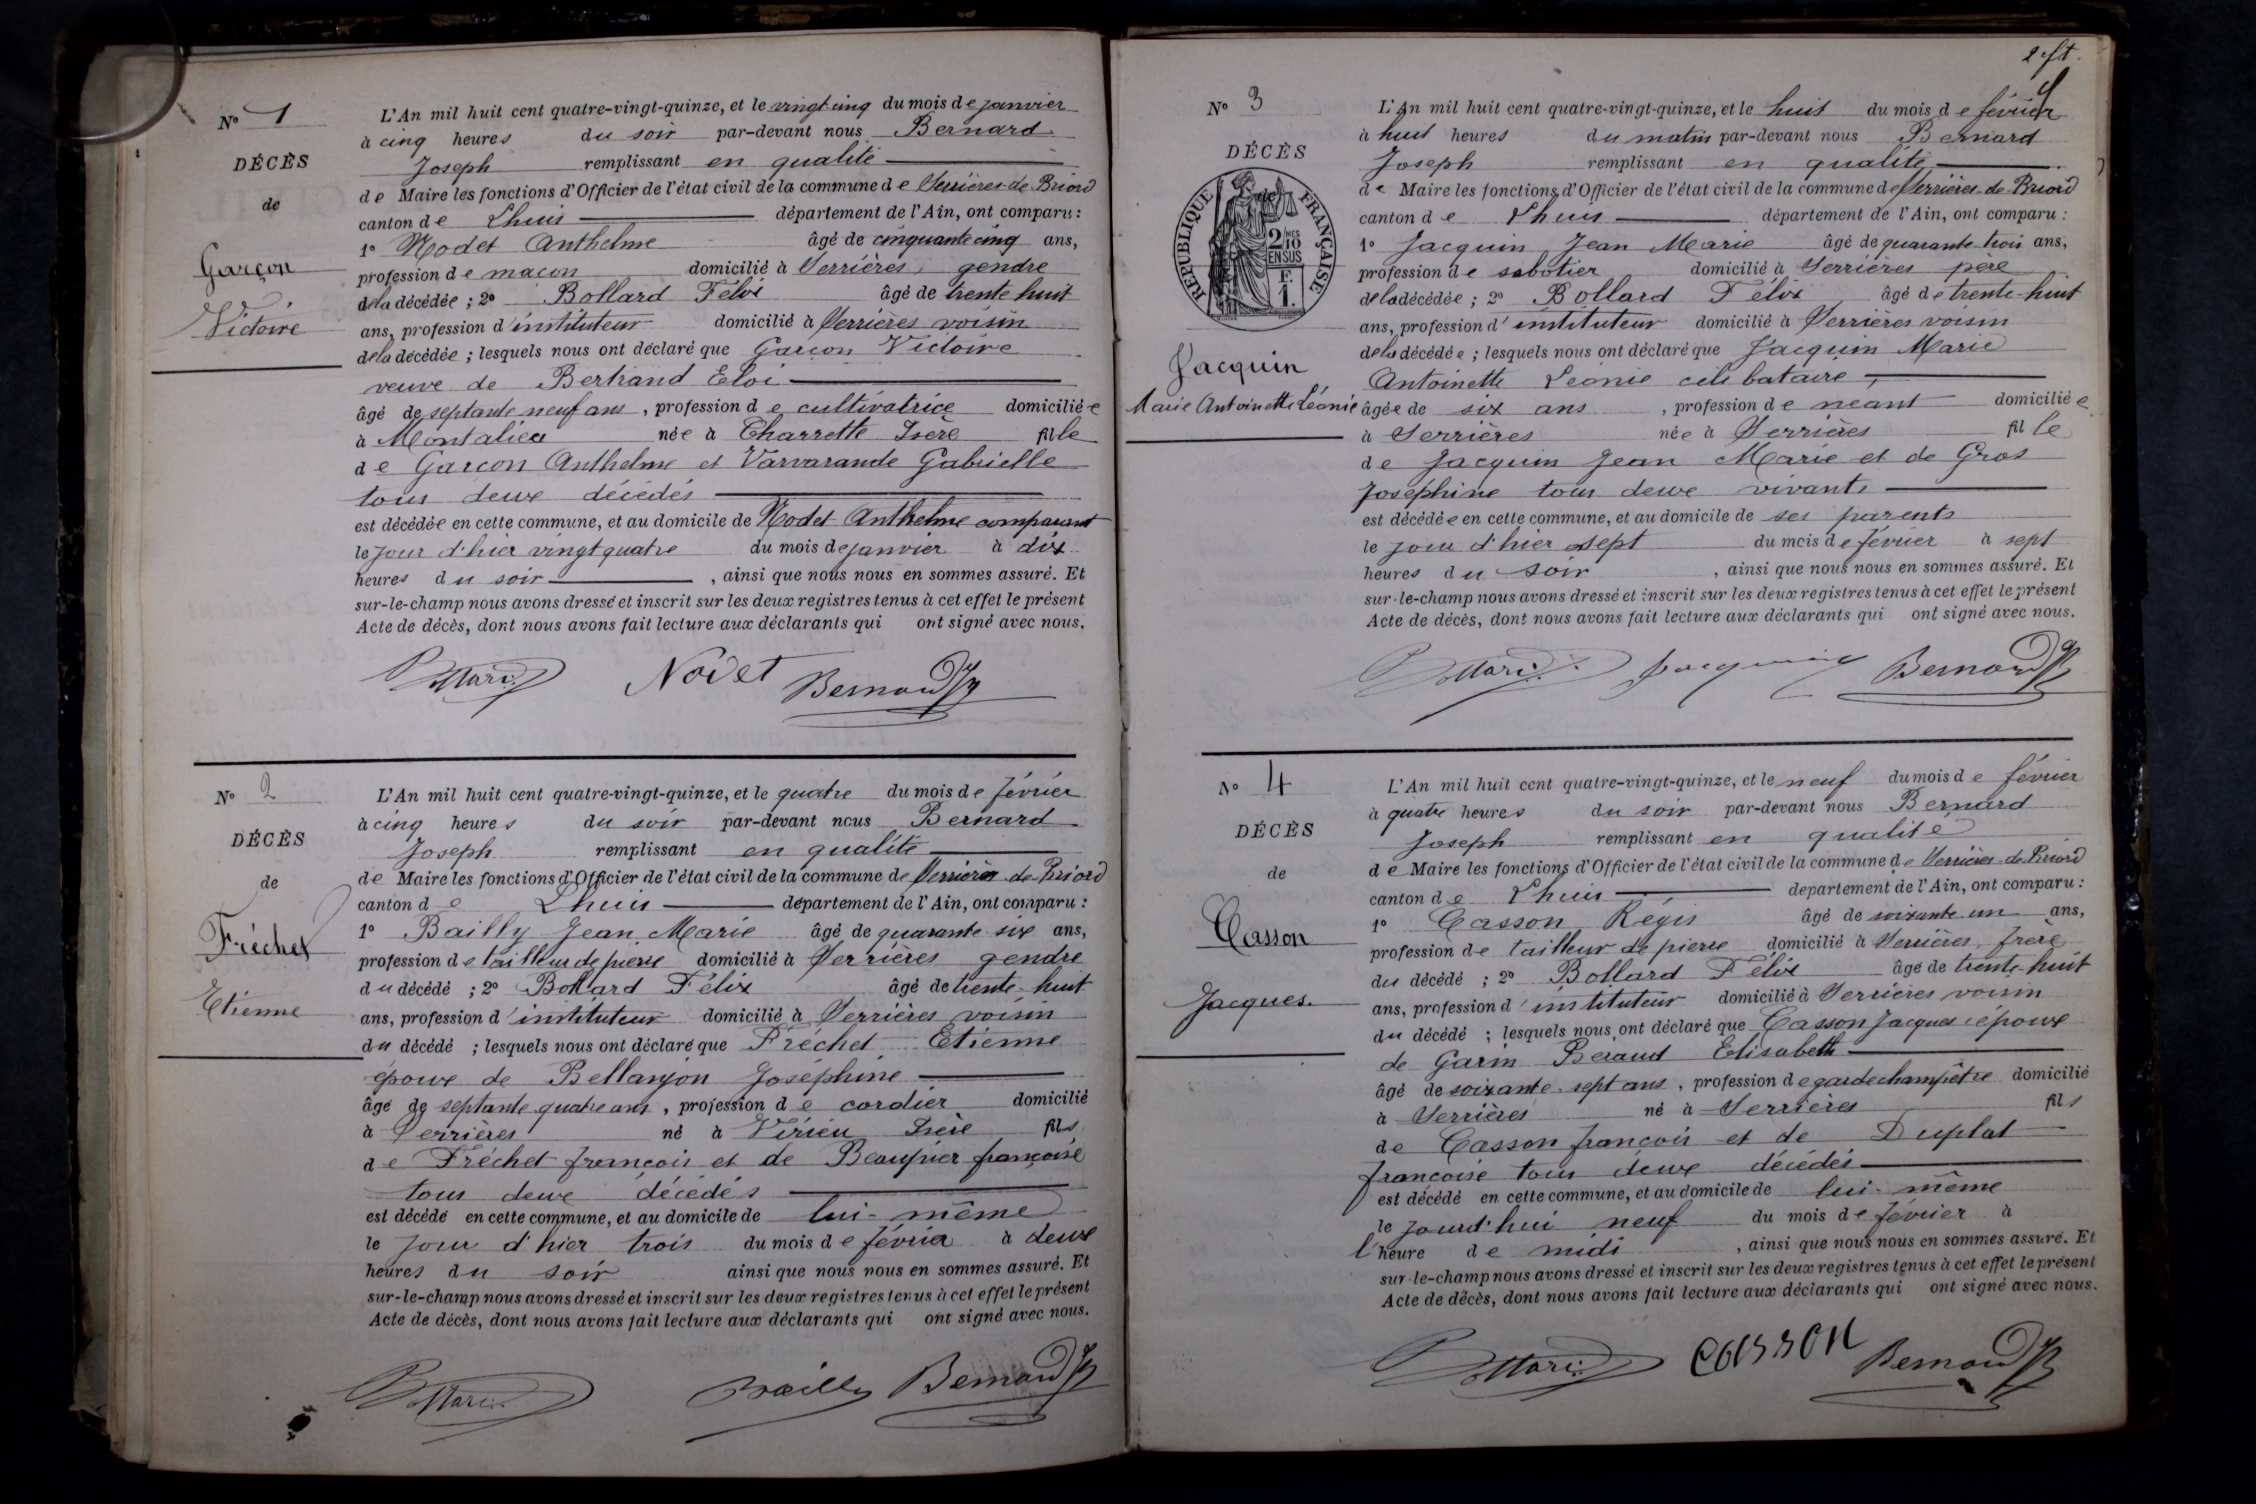 N° 1
DÉCÈS
de
Garçon
Victoire
L'An mil huit cent quatre-vingt-quinze, et le vingt cinq du mois de janvier
à cinq heures du soir par-devant nous Bernard
Joseph remplissant en qualité
de Maire les fonctions d'Officier de l'état civil de la commune de Serrières-de-Briord
canton de Lhuis département de l'Ain, ont comparu :
1° Nodet Anthelme âgé de cinquante cinq ans,
profession de maçon domicilié à Serrières, gendre
de la décédée ; 2° Bollard Félix âgé de trente huit
ans, profession d'instituteur domicilié à Serrières voisin
de la décédée ; lesquels nous ont déclaré que Garçon Victoire
veuve de Bertrand Eloi
âgé de septante neuf ans, profession de cultivatrice domiciliée
à Montalieu née à Charrette Isère fille
de Garçon Anthelme et Varvarande Gabrielle
tous deux décédés
est décédée en cette commune, et au domicile de Nodet Anthelme comparant
le jour d'hier vingt quatre du mois de janvier à dix
heures du soir, ainsi que nous nous en sommes assuré. Et
sur-le-champ nous avons dressé et inscrit sur les deux registres tenus à cet effet le présent
Acte de décès, dont nous avons fait lecture aux déclarants qui ont signé avec nous.
Bollard Nodet Bernard
N° 2
DÉCÈS
de
Fréchet
Etienne
L'An mil huit cent quatre-vingt-quinze, et le quatre du mois de février
à cinq heures du soir par-devant nous Bernard
Joseph remplissant en qualité
de Maire les fonctions d'Officier de l'état civil de la commune de Serrières-de-Briord
canton de Lhuis département de l'Ain, ont comparu :
1° Bailly Jean Marie âgé de quarante six ans,
profession de tailleur de pierre domicilié à Serrières gendre
du décédé ; 2° Bollard Félix âgé de trente-huit
ans, profession d'instituteur domicilié à Serrières voisin
du décédé ; lesquels nous ont déclaré que Fréchet Etienne
époux de Bellanjon Joséphine
âgé de septante quatre ans, profession de cordier domicilié
à Serrières né à Vérieu Isère fils
de Fréchet françois et de Beaupier françoise
tous deux décédés
est décédé en cette commune, et au domicile de lui-même
le jour d'hier trois du mois de février à deux
heures du soir ainsi que nous nous en sommes assuré. Et
sur-le-champ nous avons dressé et inscrit sur les deux registres tenus à cet effet le présent
Acte de décès, dont nous avons fait lecture aux déclarants qui ont signé avec nous.
Bollard Bailly Bernard
2 ft.
N° 3
DÉCÈS
de
RÉPUBLIQUE FRANÇAISE
2/10 MES
EN SUS
F.
1.
Jacquin
Marie Antoinette Léonie
L'An mil huit cent quatre-vingt-quinze, et le huit du mois de février
à huit heures du matin par-devant nous Bernard
Joseph remplissant en qualité
de Maire les fonctions d'Officier de l'état civil de la commune de Serrières-de-Briord
canton de Lhuis département de l'Ain, ont comparu :
1° Jacquin Jean Marie âgé de quarante-trois ans,
profession de sabotier domicilié à Serrières père
de la décédée ; 2° Bollard Félix âgé de trente-huit
ans, profession d'instituteur domicilié à Serrières voisin
de la décédée ; lesquels nous ont déclaré que Jacquin Marie
Antoinette Léonie célibataire,
âgée de six ans, profession de neant domiciliée
à Serrières née à Serrières fille
de Jacquin Jean Marie et de Gros
Josephine tous deux vivants
est décédée en cette commune, et au domicile de ses parents
le jour d'hier sept du mois de février à sept
heures du soir, ainsi que nous nous en sommes assuré. Et
sur-le-champ nous avons dressé et inscrit sur les deux registres tenus à cet effet le présent
Acte de décès, dont nous avons fait lecture aux déclarants qui ont signé avec nous.
Bollard Jacquin Bernard
N° 4
DÉCÈS
de
Casson
Jacques.
L'An mil huit cent quatre-vingt-quinze, et le neuf du mois de février
à quatre heures du soir par-devant nous Bernard
Joseph remplissant en qualité
de Maire les fonctions d'Officier de l'état civil de la commune de Serrières-de-Briord
canton de Lhuis département de l'Ain, ont comparu :
1° Casson Régis âgé de soixante un ans,
profession de tailleur de pierre domicilié à Serrières, frère
du décédé ; 2° Bollard Félix âgé de trente-huit
ans, profession d'instituteur domicilié à Serrières voisin
du décédé ; lesquels nous ont déclaré que Casson Jacques époux
de Garin Beraud Elisabeth
âgé de soixante-sept ans, profession de garde champêtre domicilié
à Serrières né à Serrières fils
de Casson françois et de Duplat
françoise tous deux décédés
est décédé en cette commune, et au domicile de lui-même
le jourd'hui neuf du mois de février à
l'heure de midi, ainsi que nous nous en sommes assuré. Et
sur-le-champ nous avons dressé et inscrit sur les deux registres tenus à cet effet le présent
Acte de décès, dont nous avons fait lecture aux déclarants qui ont signé avec nous.
Bollard Casson Bernard